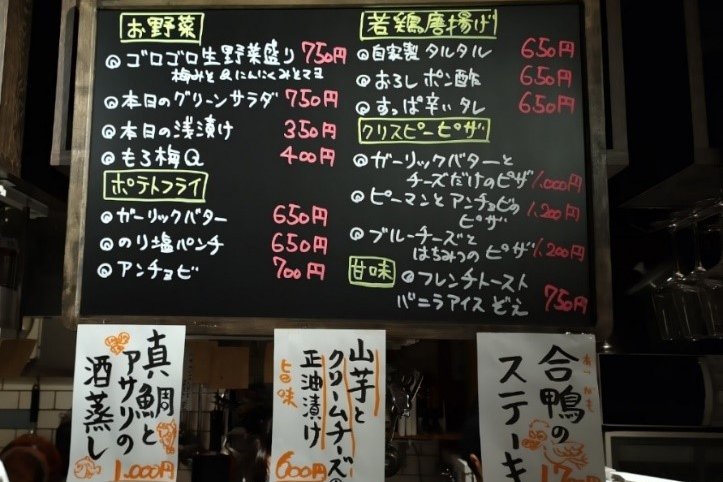 お野菜
◎ゴロゴロ生野菜盛り 750円
梅みそ&にんにくみそマヨ
◎本日のグリーンサラダ 750円
◎本日の浅漬け 350円
◎もろ梅Q 400円
ポテトフライ
◎ガーリックバター 650円
◎のり塩パンチ 650円
◎アンチョビ 700円
若鶏唐揚げ
◎自家製タルタル 650円
◎おろしポン酢 650円
◎すっぱ辛いタレ 650円
クリスピーピザ
◎ガーリックバターと
チーズだけのピザ 1.000円
◎ピーマンとアンチョビの
ピザ 1.200円
◎ブルーチーズと
はちみつのピザ 1.200円
甘味
◎フレンチトースト
バニラアイスぞえ 750円
真鯛と
アサリの
酒蒸し
1.000円
山芋と
クリームチーズの
正油漬け
旨味
600円
合鴨の
ステーキ